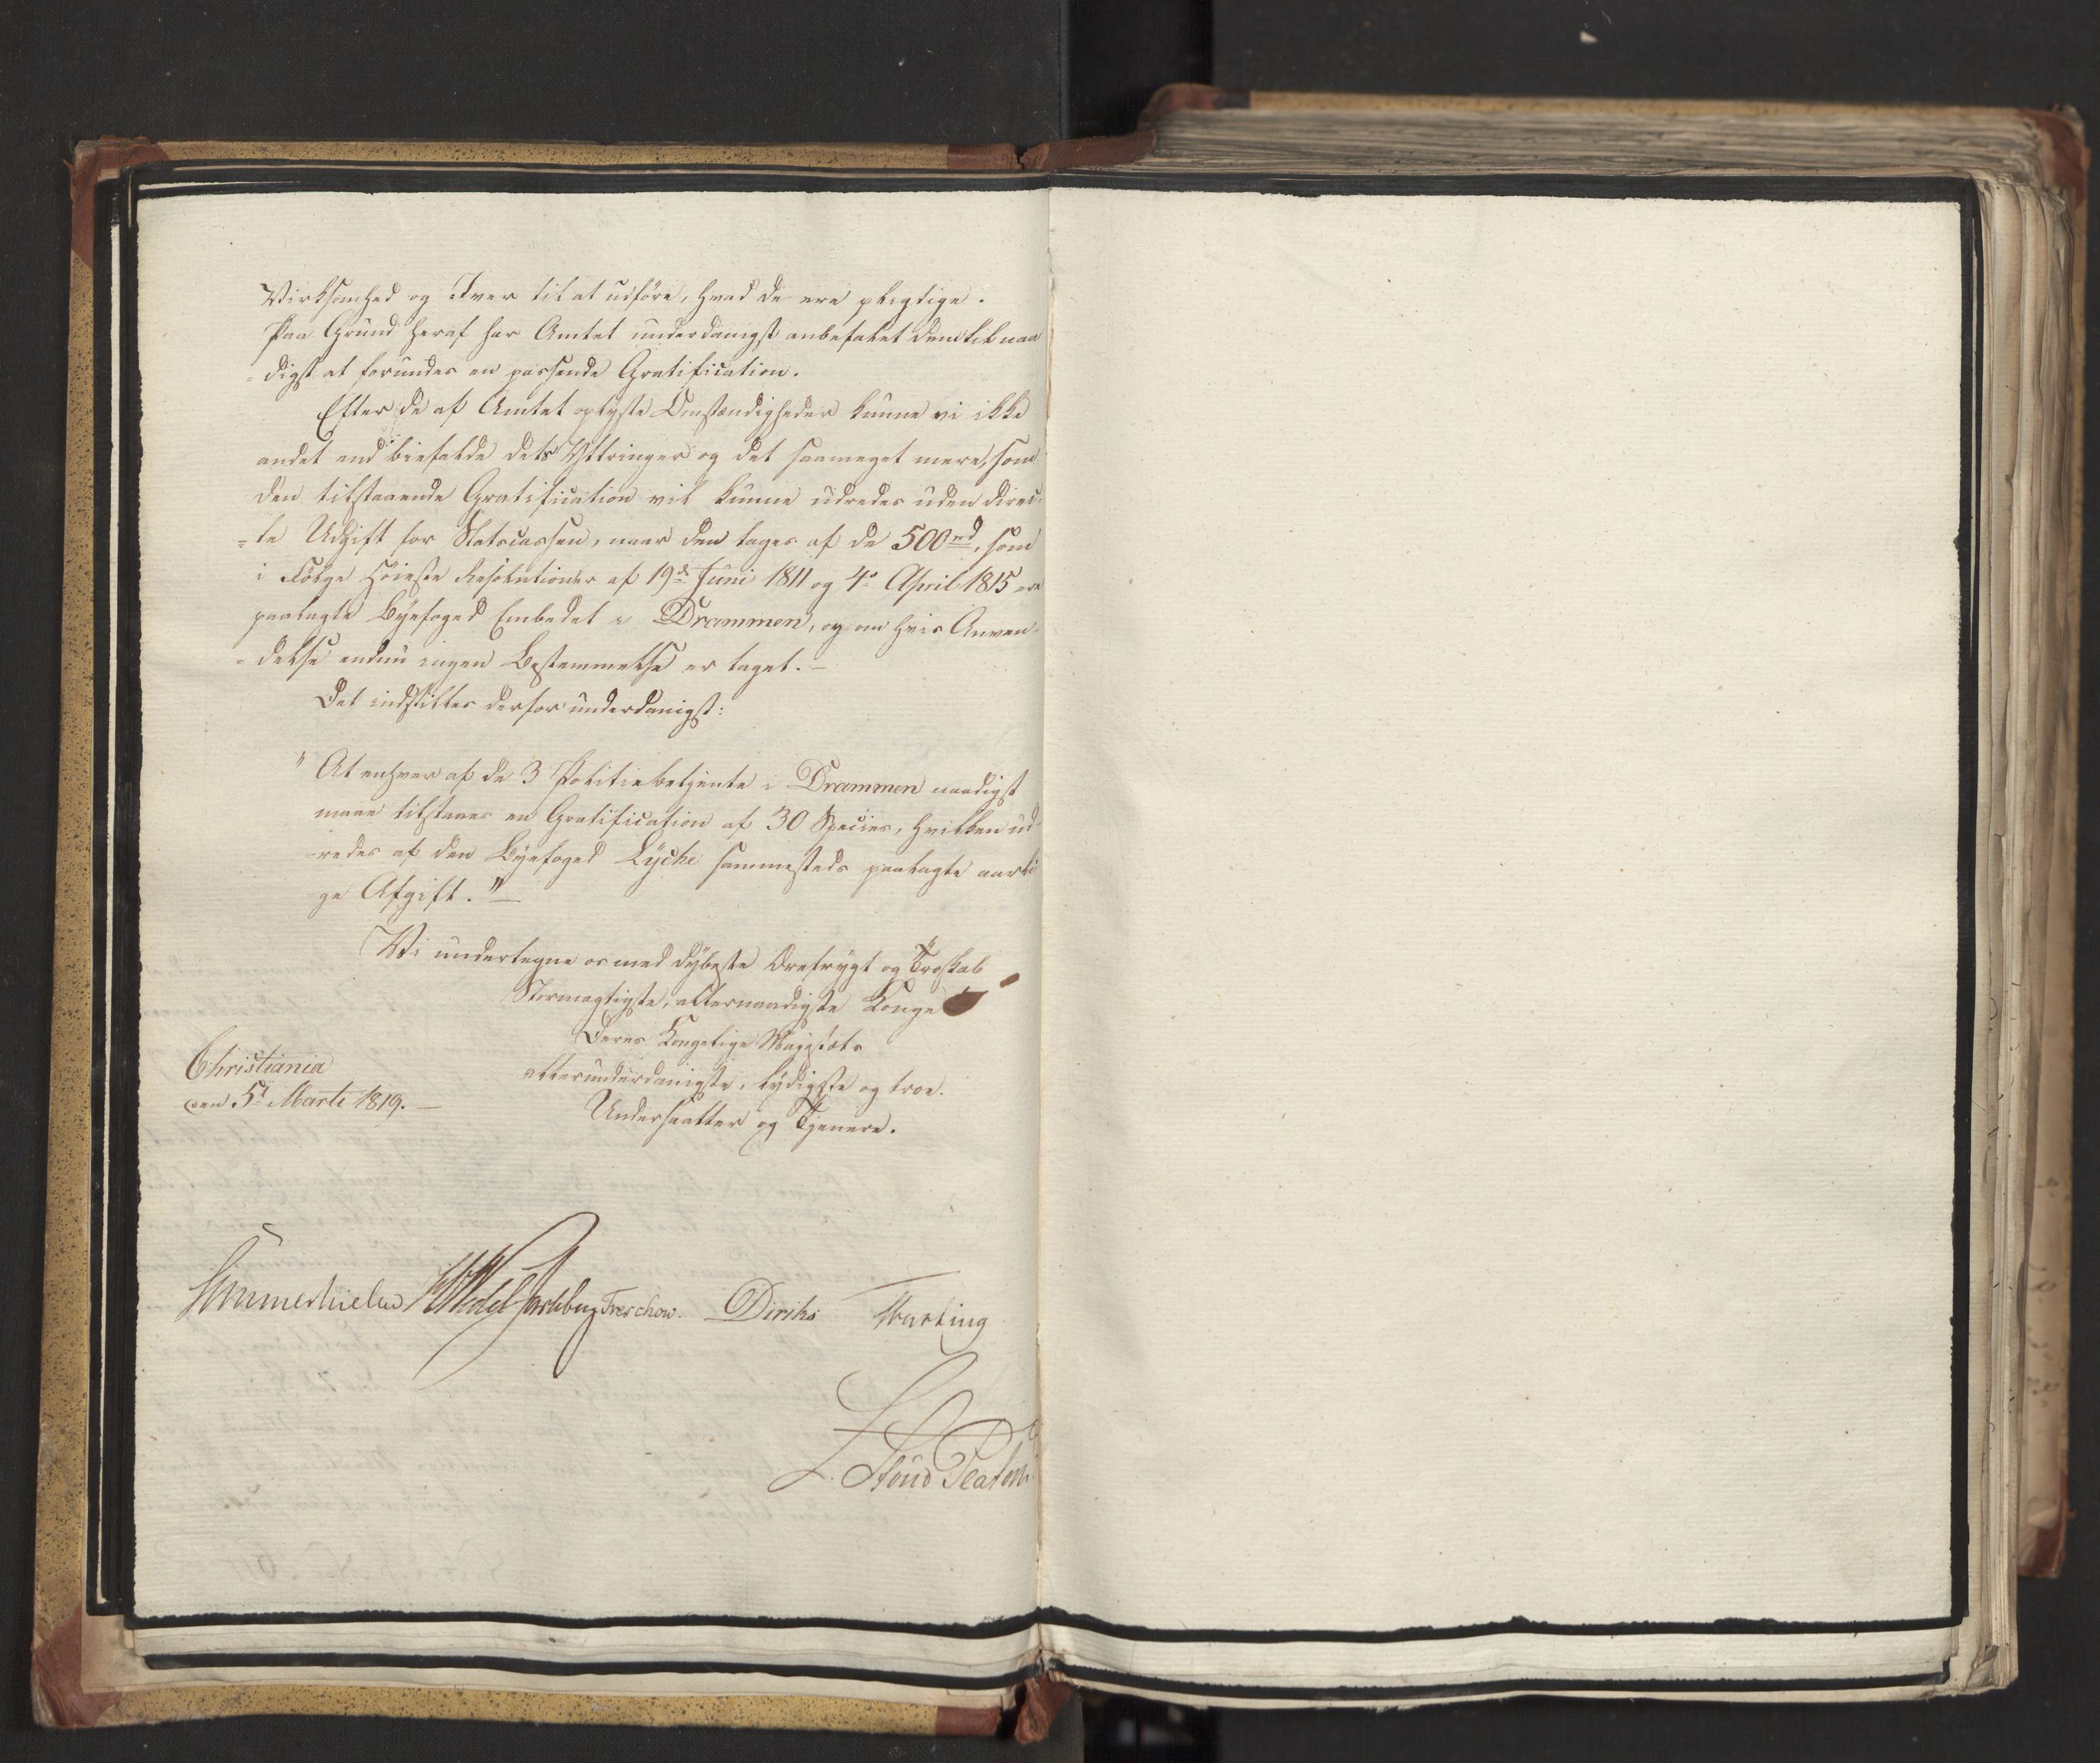 Virksomhed og Iver til at udföre, hvad de ere pligtige.
Paa Grund heraf har Amtet underdanigst anbefalet dem til naa
-digst at forundes en passende Gratification.
Efter de af Amtet oplyste Omstændigheder kunne vi ikke
andet end biefalde dets Yttringer og det saameget mere, som
den tilstaaende Gratification vil kunne udredes uden direc-
-te Udgift for Statscassen, naar den tages af de 500 rd, som
i Fölge Höieste Resolutioner af 19de Juni 1811 og 4de April 1815 ere
paalagte Byefoged Embedet i Drammen, og om hvis Anven-
-delse endnu ingen Bestemmelse er taget. -
Det indstilles derfor underdanigst:
" At enhver af de 3 Politiebetjente i Drammen naadigst
maae tilstaaes en Gratification af 30 Species, hvilken ud-
-redes af den Byefoged Lÿche sammesteds paalagte aarli
ge Afgift." -
Vi undertegne os med dybeste Ærefrygt og Troskab
Stormægtigste, allernaadigste Konge
Deres Kongelige Majestæts
allerunderdanigste, lydigste og troe.
Christiania
den 5t Marts 1819. -
Undersaatter og Tjenere.
Sommerhielm Wedel Jarlsberg Treschow. Diriks Motzfeldt
L. Stoud Platou